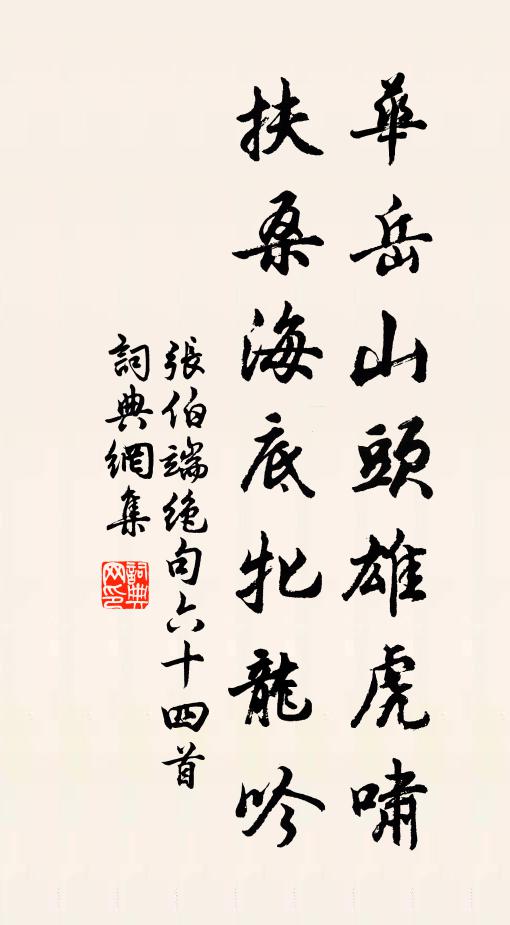 華岳山頭雄虎嘯
扶桑海底牝龍吟
張伯端絶句六十四首
詞典網集
詞典
网印